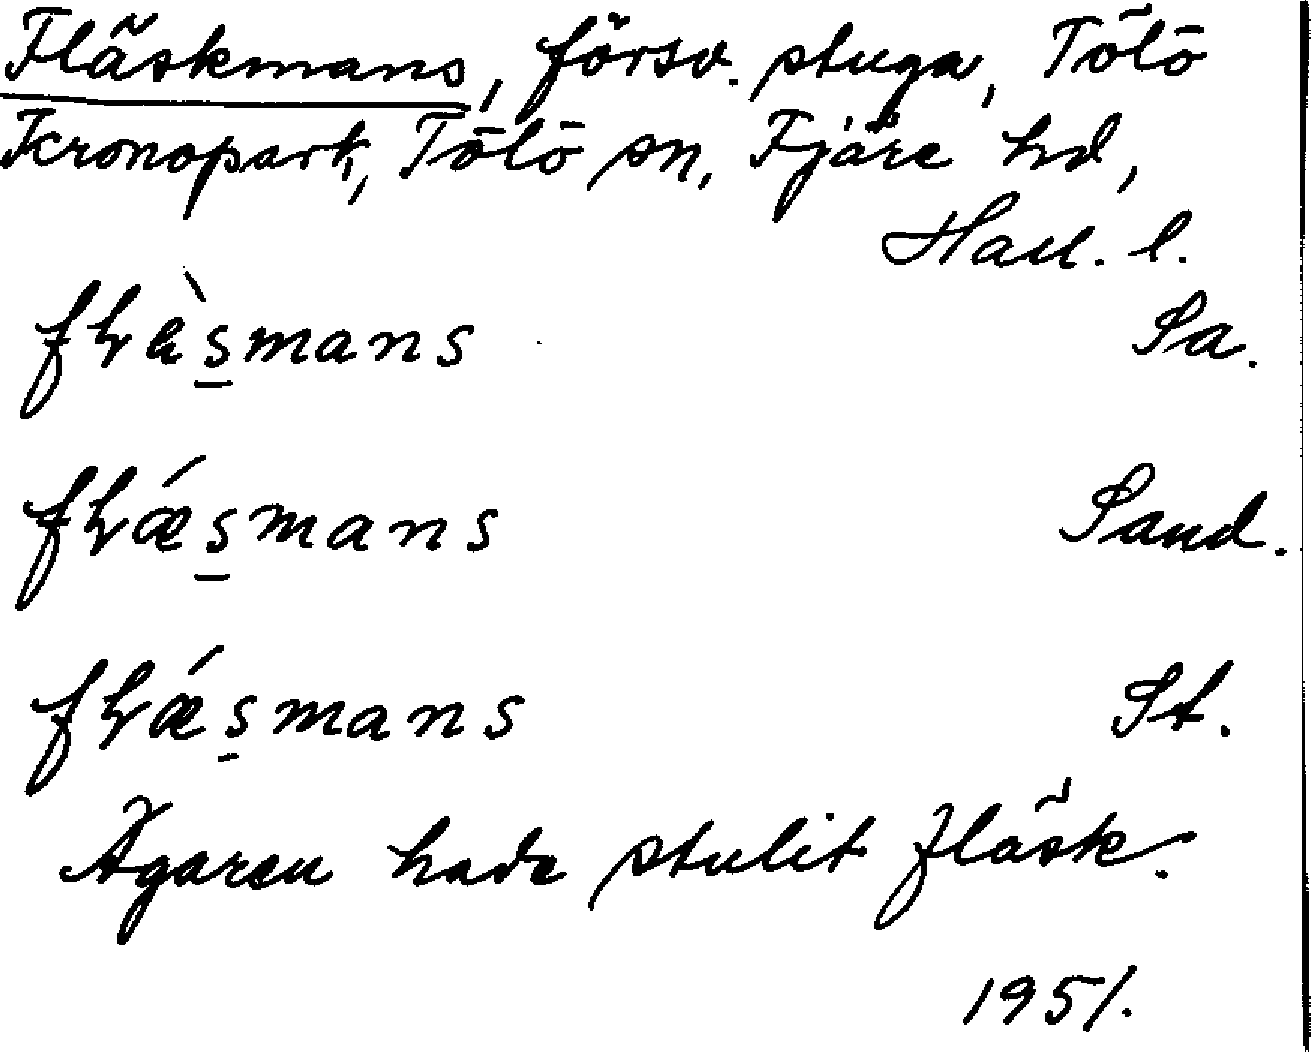 Fläskmans, försv. stuga, Tölö
Kronopark, Tölö sn, Fjäre hd,
Hall. l.
fɫàs̱mans Sa.
fɫǽs̱mans Sand.
fɫǽs̱mans St.
Ägaren hade stulit fläsk.
1951.